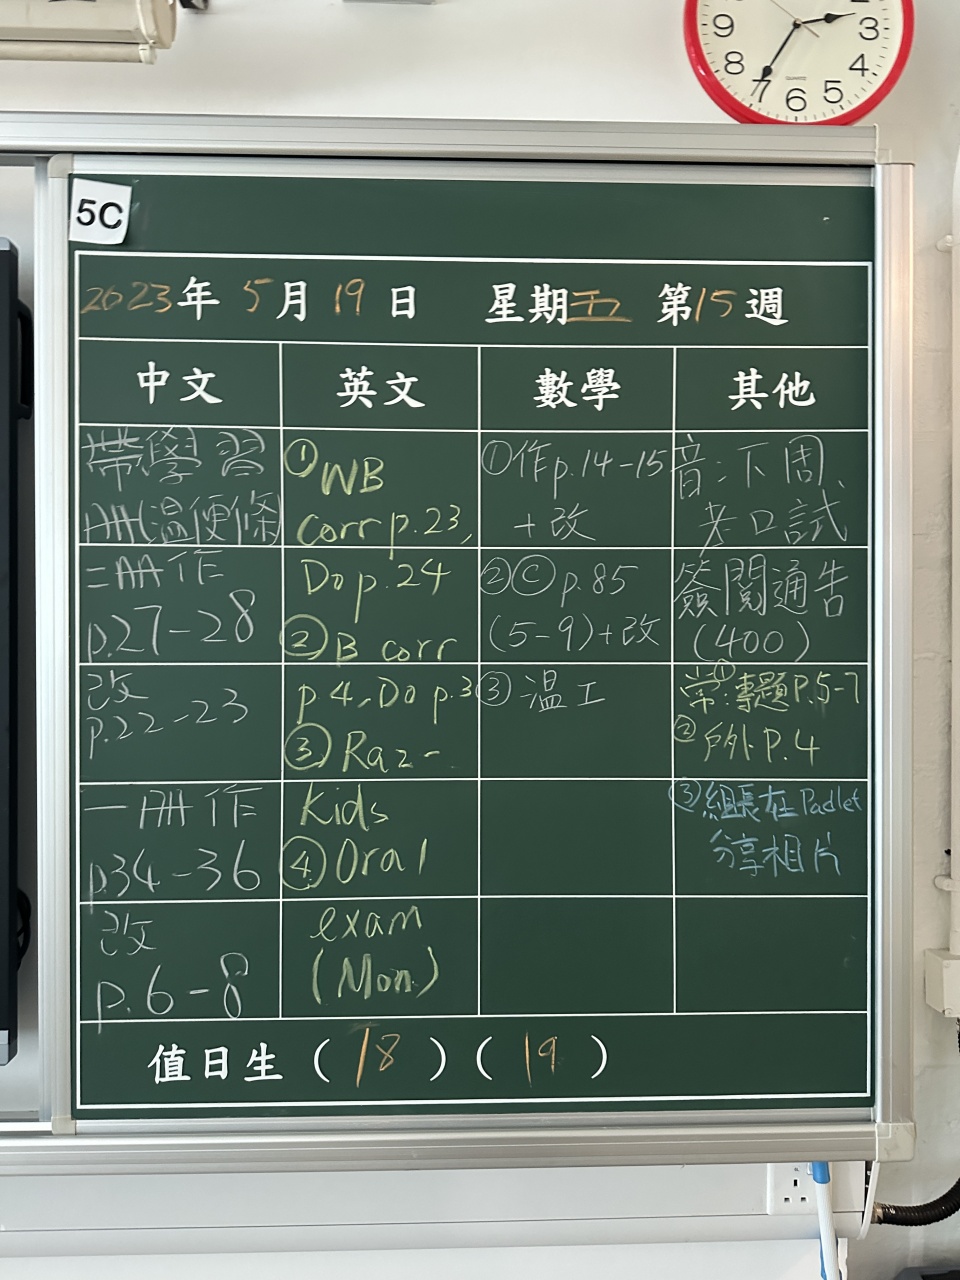 9 3
8 4
7 6 5
QUARTZ
5C
2023年 5月 19日 星期五 第15週
中文 英文 數學 其他
帶學習
冊(溫便條
二冊作
p.27-28
改
p.22-23
一冊作
p.34-36
改
p.6-8
①WB
corr p.23,
Do p.24
②B corr
p 4, Do p.3
③Raz-
Kids
④Oral
exam
(Mon.)
①作p.14-15
+改
②Ⓒp.85
(5-9)+改
③溫工
音:下周、
考口試
簽閱通告
(400)
常:①專題P.5-7
②戶外P.4
③組長在Padlet
分享相片
值日生(18)(19)